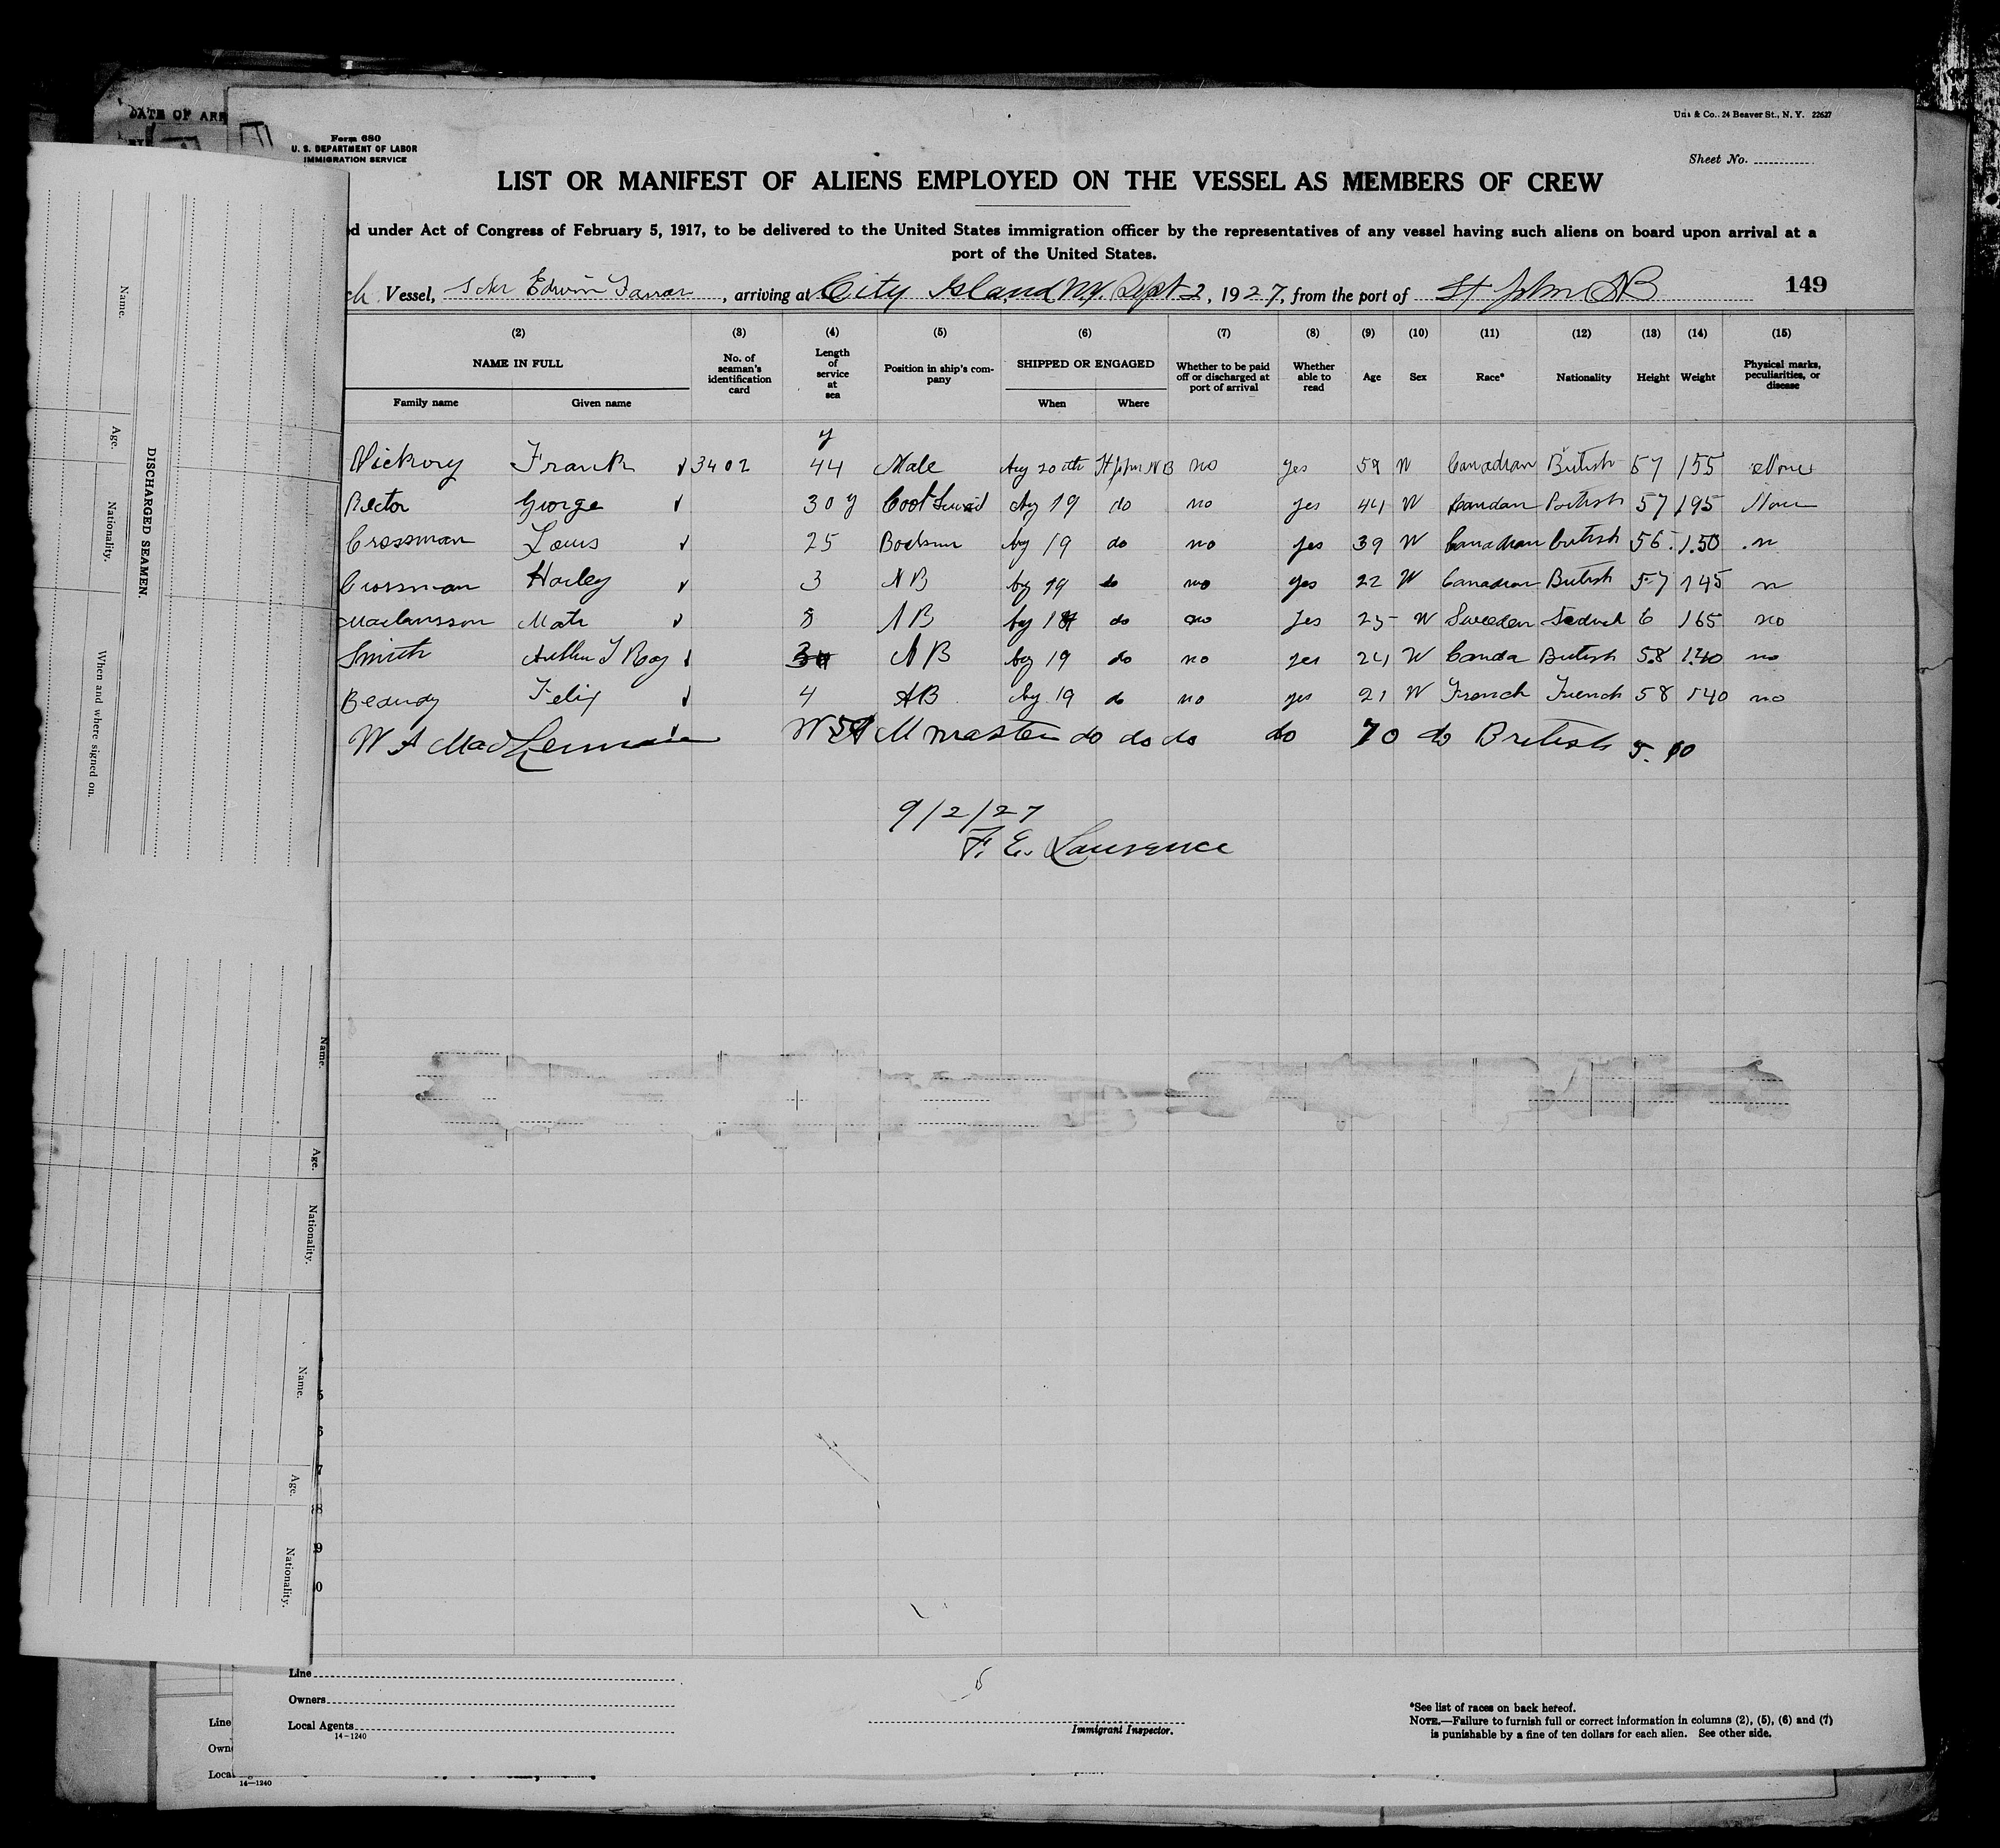 DATE OF ARR
Form 680
U. S. DEPARTMENT OF LABOR
IMMIGRATION SERVICE
24 Beaver St., N. Y. 22627
Sheet No.
LIST OR MANIFEST OF ALIENS EMPLOYED ON THE VESSEL AS MEMBERS OF CREW
d under Act of Congress of February 5, 1917, to be delivered to the United States immigration officer by the representatives of any vessel having such aliens on board upon arrival at a
port of the United States.
ch Vessel, Schr Edwin Farrar, arriving at City Island NY. Sept 2, 1927, from the port of St John NB 149
(2) (3) (4) (5) (6) (7) (8) (9) (10) (11) (12) (13) (14) (15)
NAME IN FULL No. of seaman's identification card Length of service at sea Position in ship's company SHIPPED OR ENGAGED Whether to be paid off or discharged at port of arrival Whether able to read Age Sex Race* Nationality Height Weight Physical marks, peculiarities, or disease
Family name Given name When Where
y
Vickory Frank 3402 44 Mate Aug 20th St John NB no yes 59 W Canadian British 57 155 None
Rector George 30 y Cook Aug 19 do no yes 44 W British 57 195 None
Crossman Louis 25 Aug 19 do no yes 39 W Canadian British 56 1.50 n
Crossman Harley 3 AB Aug 19 do no yes 22 W Canadian British 57 145 n
Mats 8 AB Aug do no yes 25 W Sweeden 6 165 no
Smith Arthur Roy AB Aug 19 do no yes 24 W Canda British 5.8 140 no
Beaudy Felix 4 AB Aug 19 do no yes 21 W French French 58 140 no
W A master do do do do 70 do British 5.10
9/2/27
F. E. Lawrence
DISCHARGED SEAMEN.
Name.
Age.
Nationality.
When and where signed on.
Name.
Age.
Nationality.
Name.
Age.
Nationality.
Line
Owners
Local Agents
14-1240
Immigrant Inspector.
*See list of races on back hereof.
NOTE.—Failure to furnish full or correct information in columns (2), (5), (6) and (7)
is punishable by a fine of ten dollars for each alien. See other side.
Line
Own
Loca
14-1240